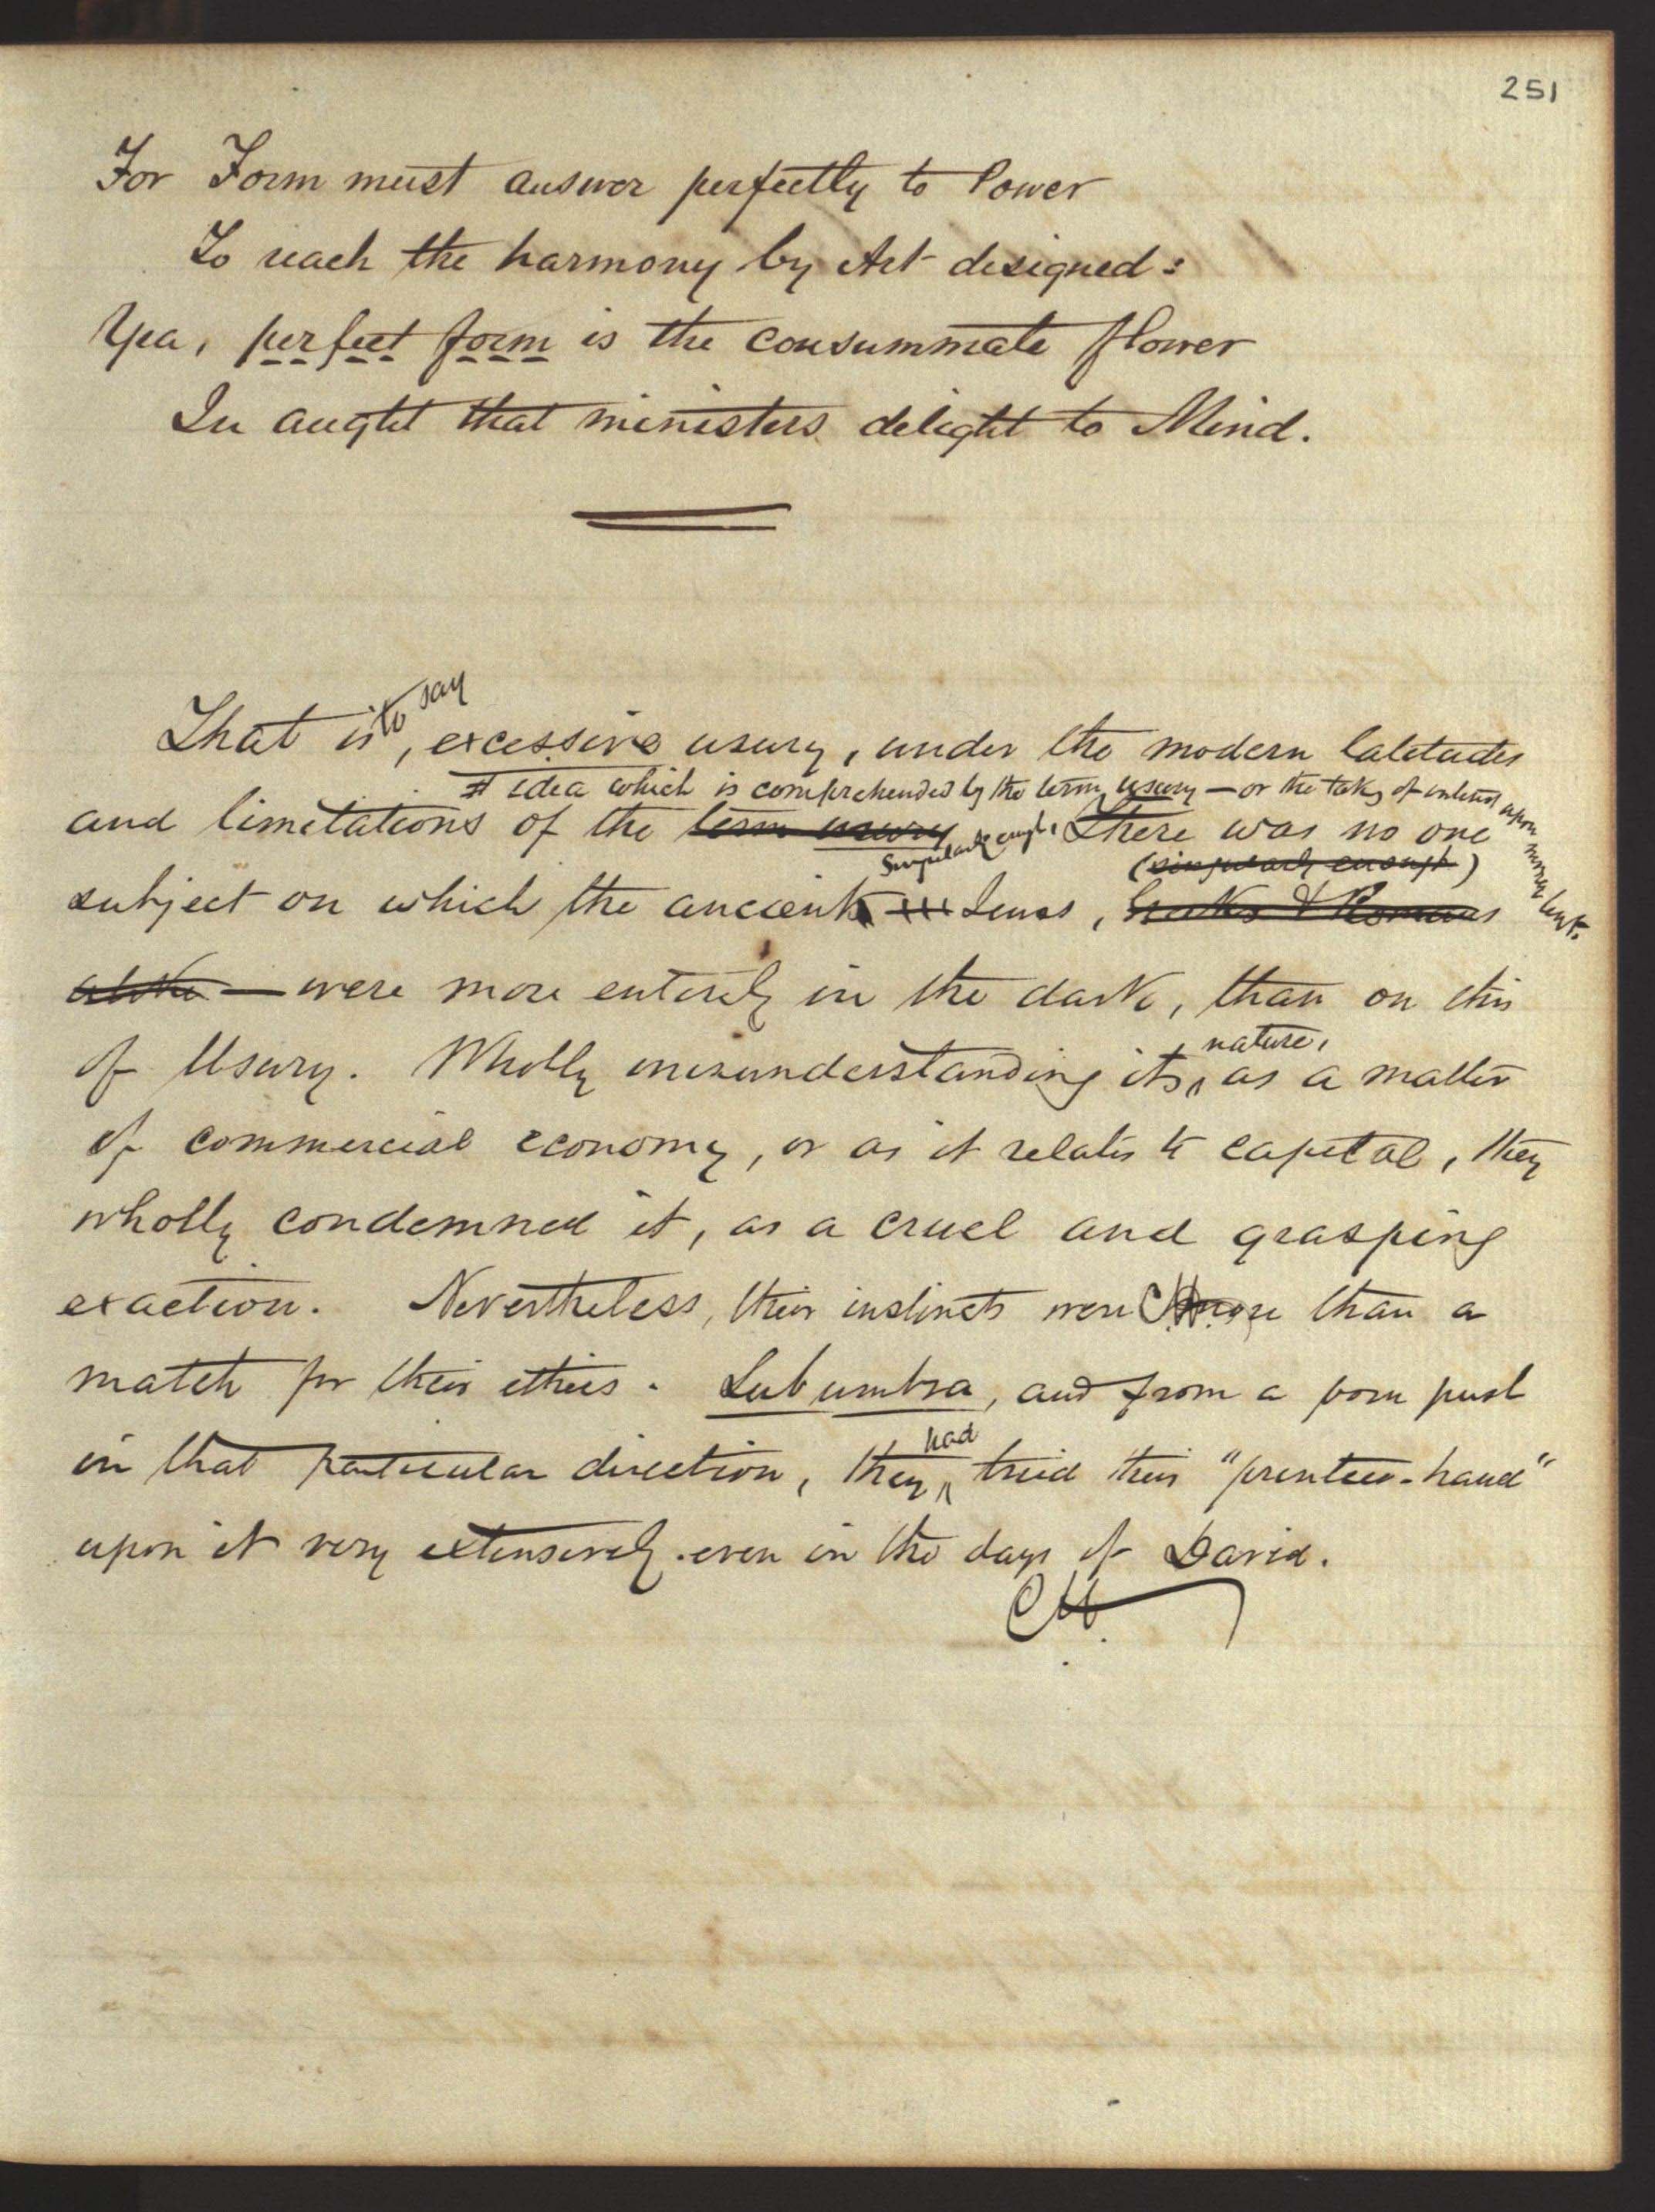 251
For Form must answer perfectly to Power
To reach the harmony by Art designed:
Yea, perfect form is the consummate flower
In aught that ministers delight to Mind.
to say
That is, excessive usury, under the modern latitudes
idea which is comprehended by the term usury — or the taking of interest upon money lent.
and limitations of the term usury Singularly enough, There was no one
(singularly enough)
subject on which the ancient Jews, Greeks & Romans
alike — were more entirely in the dark, than on this
nature,
of Usury. Wholly misunderstanding its, as a matter
of commercial economy, or as it relates to capital, they
wholly condemned it, as a cruel and grasping
exaction. Nevertheless, their instincts were more than a
match for their ethics. Sub umbra, and from a push
had
in that particular direction, they tried their "prentice-hand"
upon it very extensively even in the days of David.
CH.